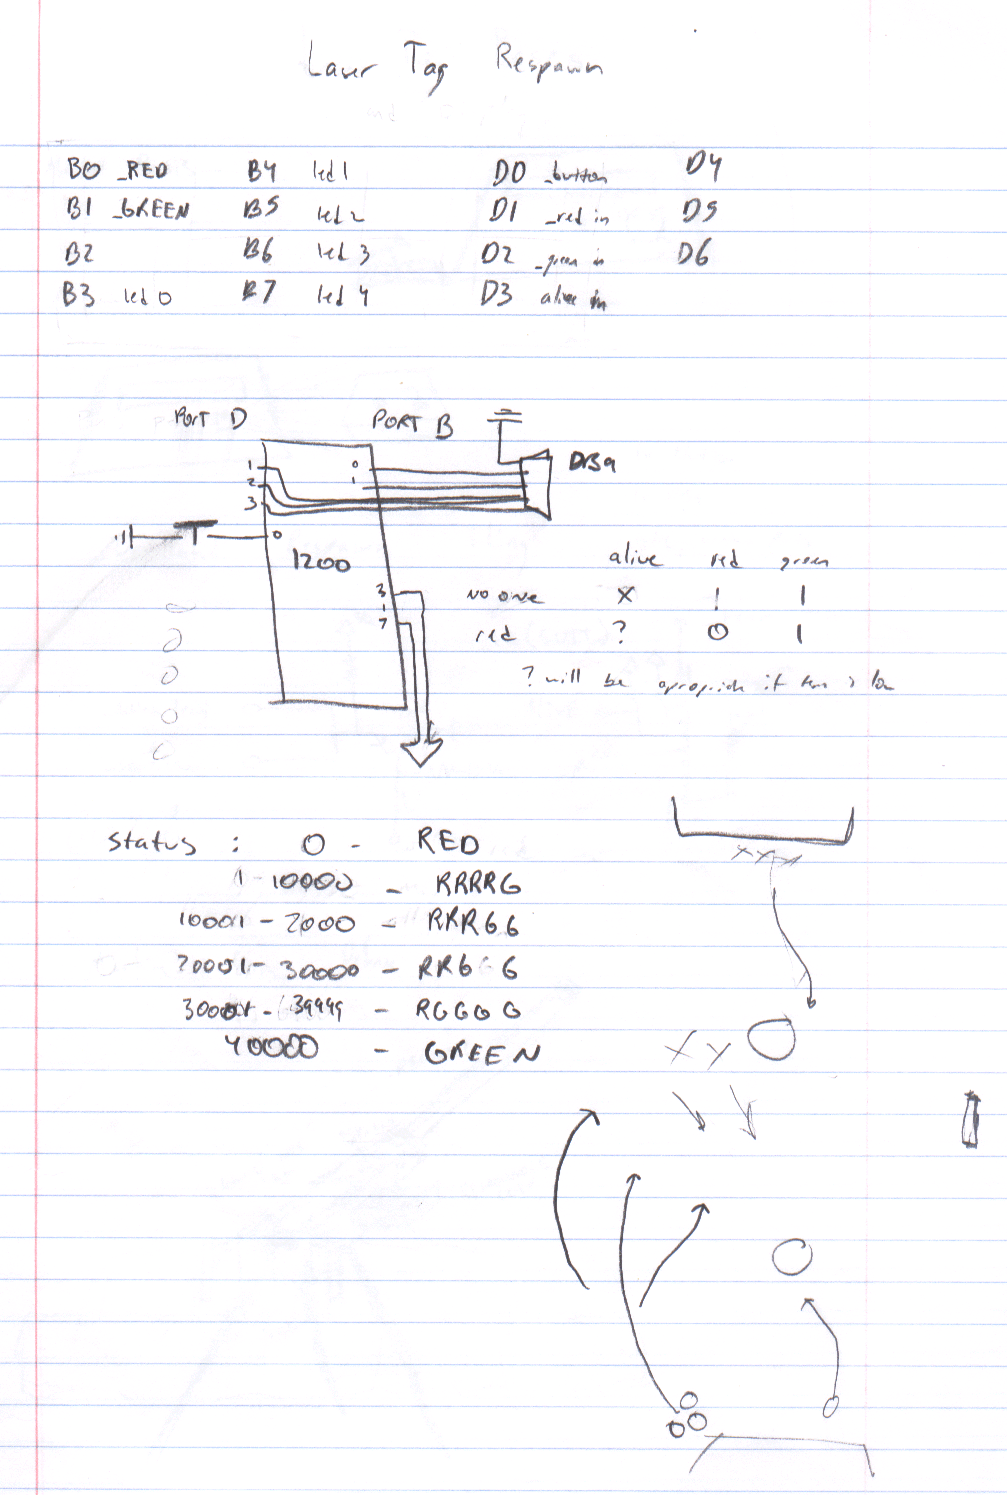 Laser Tag Respawn
B0 _RED B4 led 1 D0 _button D4
B1 _GREEN B5 led 2 D1 _red in D5
B2 B6 led 3 D2 _green in D6
B3 led 0 B7 led 4 D3 alive in
Port D PORT B
DB9
1 0
2 1
3
0
1200
3
1
7
alive red green
no one X 1 1
red ? 0 1
? will be if low
status : 0 - RED
1-10000 - RRRRG
10001 - 2000 - RRRGG
20001- 30000 - RRGGG
30001 - 39999 - RGGGG
40000 - GREEN
XXX
X Y